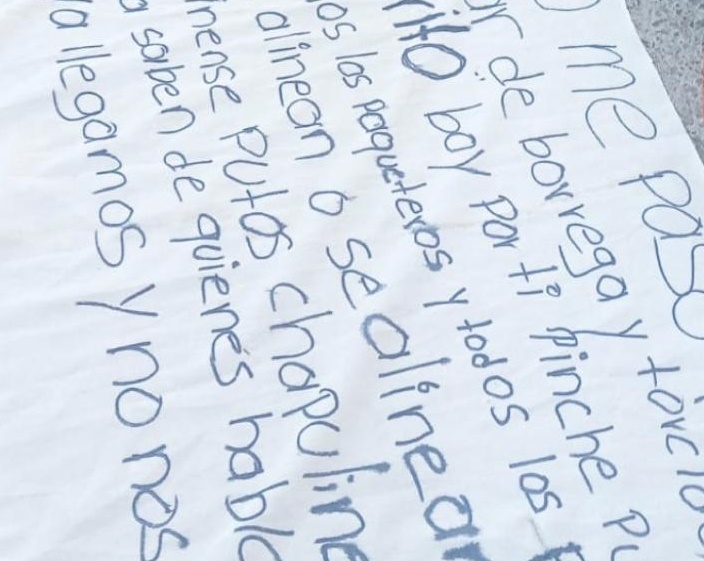 me paso
de borrega y torcio
boy por ti pinche
los paqueteros y todos los
alinean o se alinean
putos chapuline
saben de quienes habl
llegamos y no nos